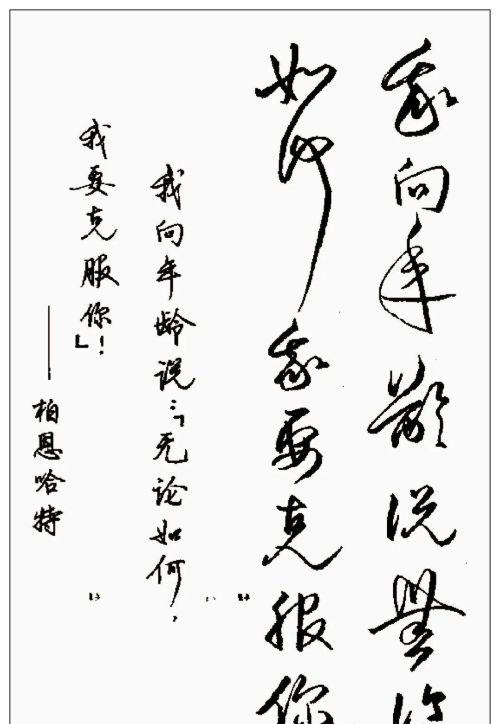 我向年龄说無论
如何我要克服你
我向年龄说:「无论如何,
我要克服你」!
——柏恩哈特